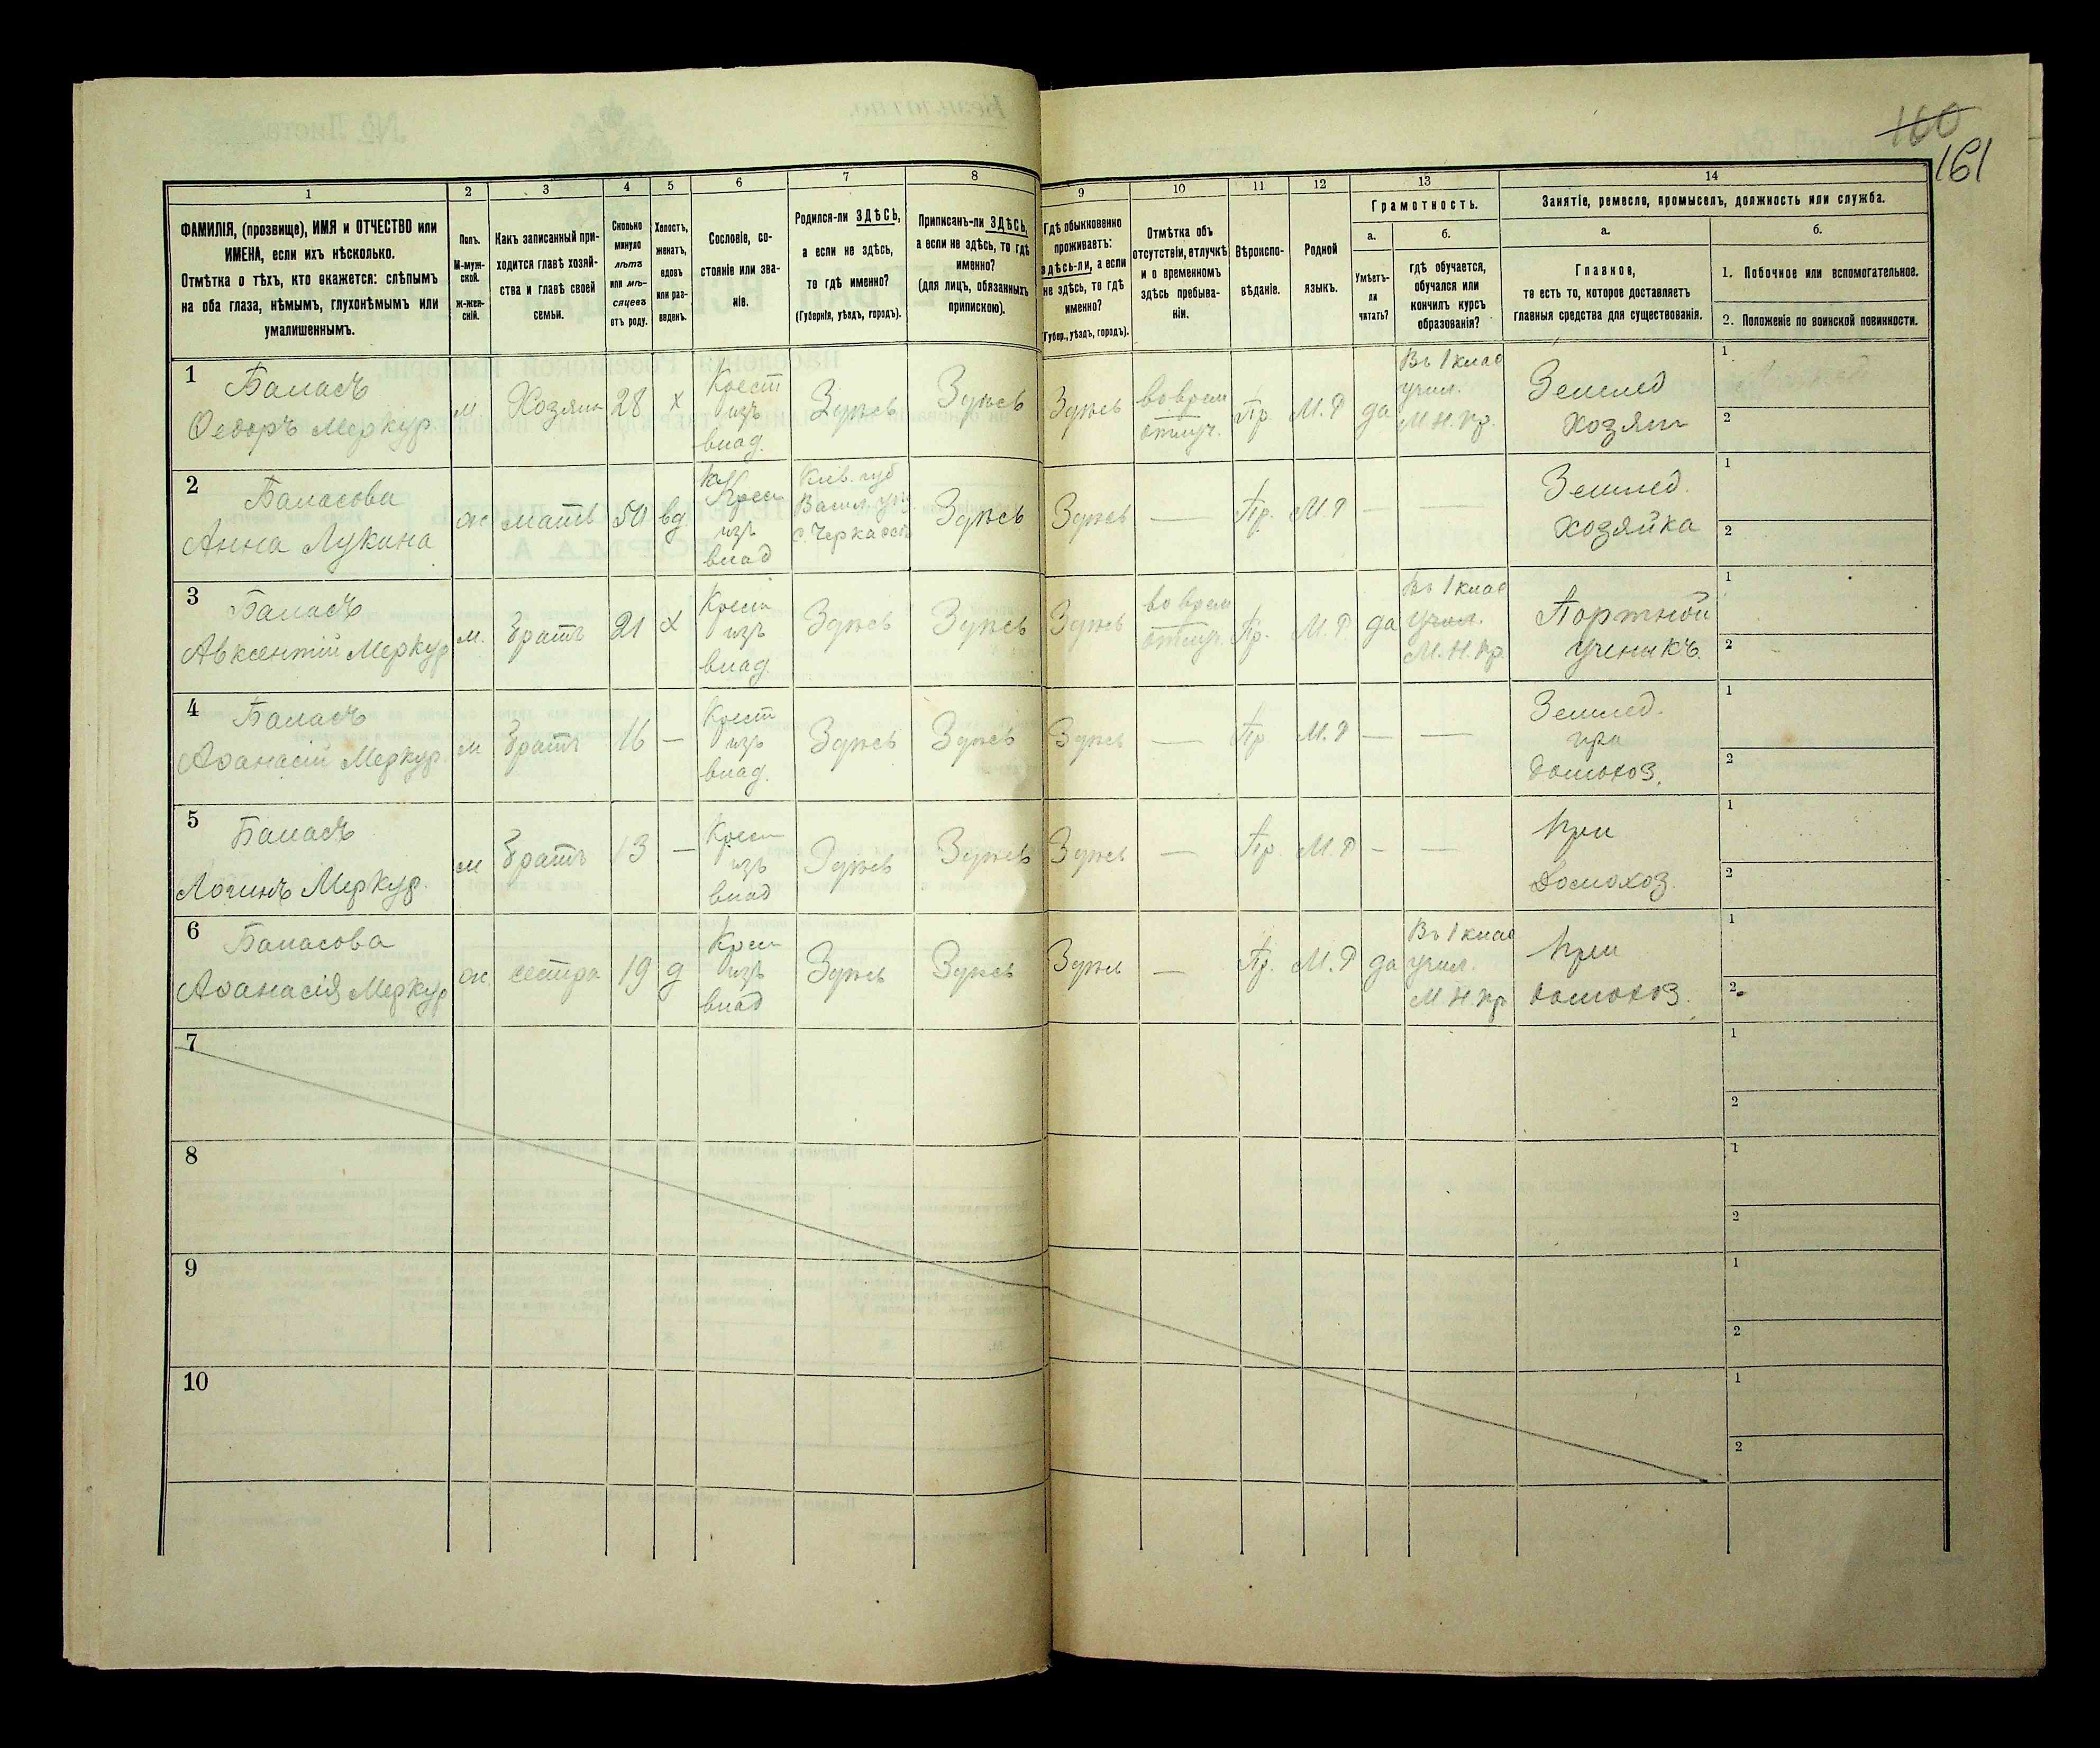 160
161
1
2
3
4
5
6
7
8
9
10
11
12
13
14
ФАМИЛІЯ, (прозвище), ИМЯ и ОТЧЕСТВО или
ИМЕНА, если ихъ нѣсколько.
Отмѣтка о тѣхъ, кто окажется: слѣпымъ
на оба глаза, нѣмымъ, глухонѣмымъ или
умалишеннымъ.
Полъ.
М-муж-
ской.
Ж-жен-
скій.
Какъ записанный при-
ходится главѣ хозяй-
ства и главѣ своей
семьи.
Сколько
минуло
лѣтъ
или мѣ-
сяцевъ
отъ роду.
Холостъ,
женатъ,
вдовъ
или раз-
веденъ.
Сословіе, со-
стояніе или зва-
ніе.
Родился-ли ЗДѢСЬ,
а если не здѣсь,
то гдѣ именно?
(Губернія, уѣздъ, городъ).
Приписанъ-ли ЗДѢСЬ,
а если не здѣсь, то гдѣ
именно?
(для лицъ, обязанныхъ
припискою).
Гдѣ обыкновенно
проживаетъ:
здѣсь-ли, а если
не здѣсь, то гдѣ
именно?
(Губер., уѣздъ, городъ).
Отмѣтка объ
отсутствіи, отлучкѣ
и о временномъ
здѣсь пребыва-
ніи.
Вѣроиспо-
вѣданіе.
Родной
языкъ.
Грамотность.
а.
Умѣетъ-
ли
читать?
б.
гдѣ обучается,
обучался или
кончилъ курсъ
образованія?
Занятіе, ремесло, промыселъ, должность или служба.
а.
Главное,
то есть то, которое доставляетъ
главныя средства для существованія.
б.
1. Побочное или вспомогательное.
2. Положеніе по воинской повинности.
1
Баласъ
Ѳедоръ Меркур.
м.
Хозяин
28
х
Крест
изъ
влад.
Здѣсь
Здѣсь
Здѣсь
во врем
отлуч.
Пр.
М.Р
да
Въ 1 клас
учил.
М.Н.Пр.
Землед
хозяин
1
2
2
Баласова
Анна Лукина
ж
мать
50
вд
Крест
изъ
влад
Кіев. губ
Васил. уѣз.
Здѣсь
Здѣсь
—
Пр.
М.Р
—
—
Землед.
хозяйка
1
2
3
Баласъ
Авксентій Меркур
м.
братъ
21
х
Крест
изъ
влад.
Здѣсь
Здѣсь
Здѣсь
во врем
отлуч.
Пр.
М.Р.
да
Въ 1 клас
учил.
М.Н.Пр.
Портной
ученикъ.
1
2
4
Баласъ
Аѳанасій Меркур.
м
братъ
16
—
Крест
изъ
влад.
Здѣсь
Здѣсь
Здѣсь
—
Пр
М.Р
—
—
Землед.
при
домохоз.
1
2
5
Баласъ
Логинъ Меркур.
м
братъ
13
—
Крест
изъ
влад
Здѣсь
Здѣсь
Здѣсь
—
Пр
М.Р
—
—
при
домохоз.
1
2
6
Баласова
Аѳанасія Меркур
ж.
сестра
19
д
Крест
изъ
влад
Здѣсь
Здѣсь
Здѣсь
—
Пр.
М.Р
да
Въ 1 клас
учил.
М.Н.Пр
при
домохоз.
1
2
7
1
2
8
1
2
9
1
2
10
1
2